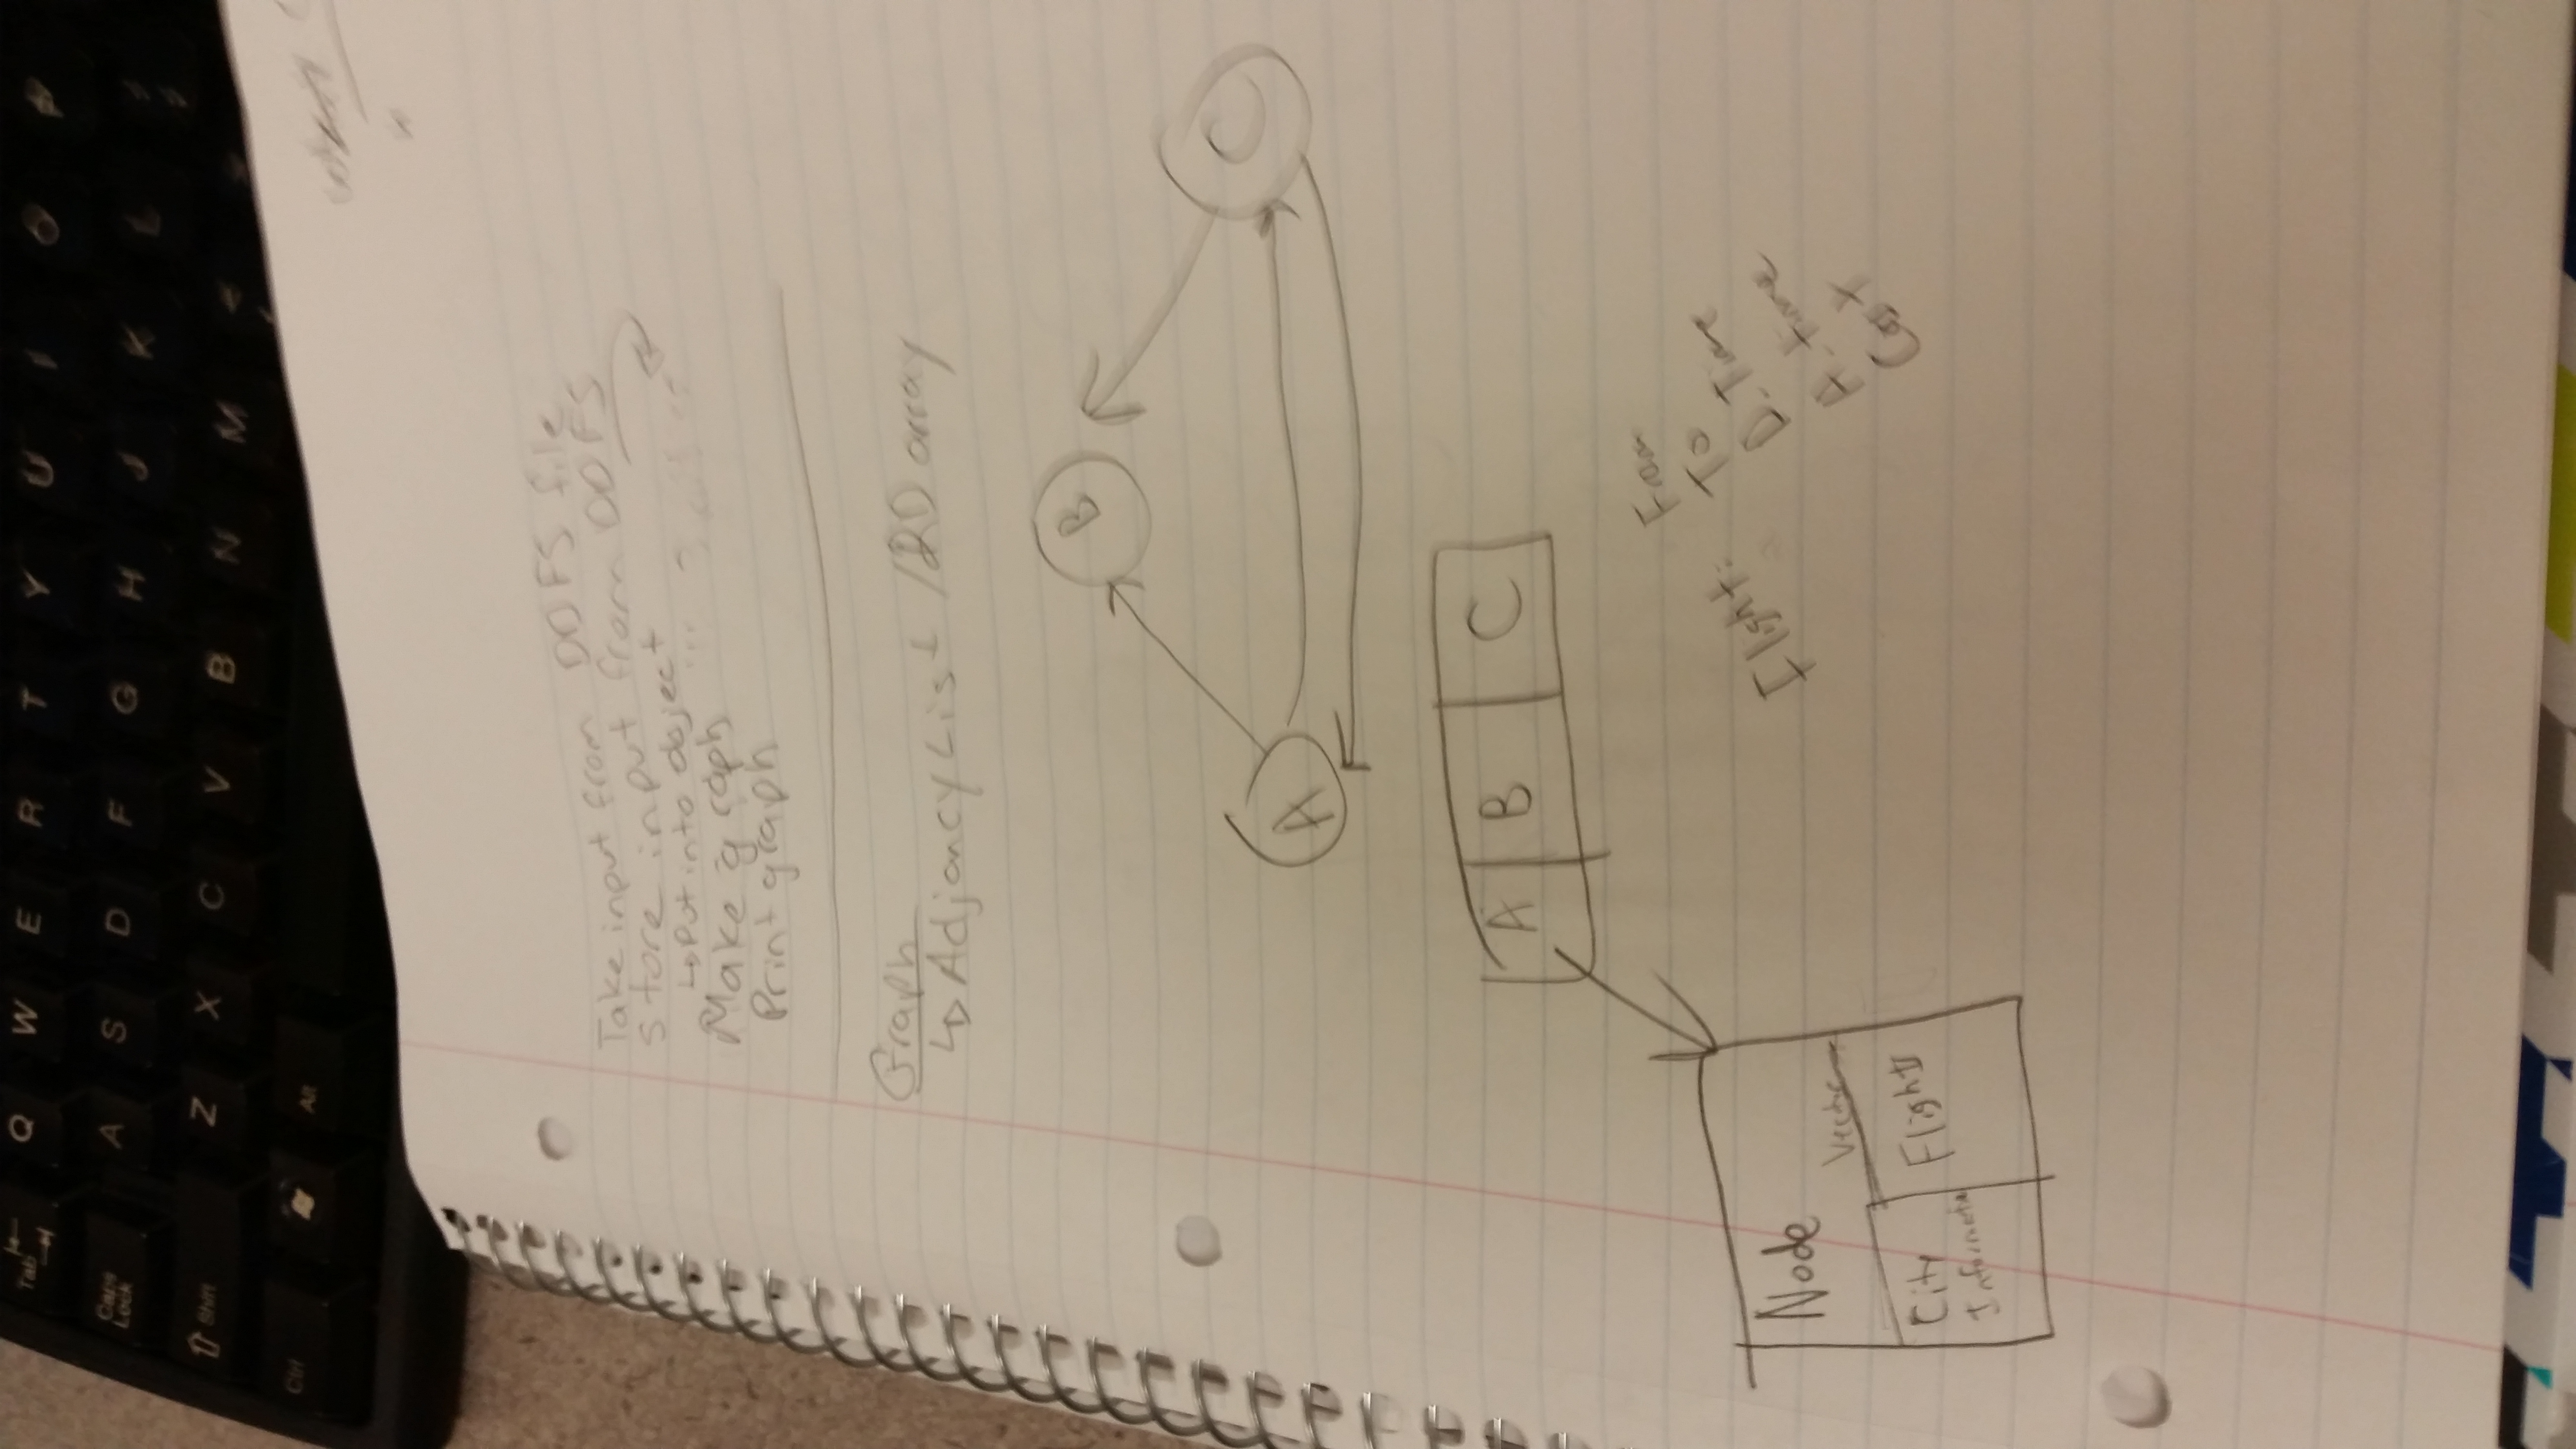 Tab Q W E R T Y U I O P
Caps Lock A S D F G H J K L ;
Shift Z X C V B N M <
Ctrl Alt
Take input from DOFS file
Store input from DOFS
↳ Put into object
Make graph
Print graph
Graph
↳ Adjancy List / 2D array
B
A
C
A B C
Node
Vector
City
Informatio
Flights
Flight:
From
To
D. Time
A. time
Cost